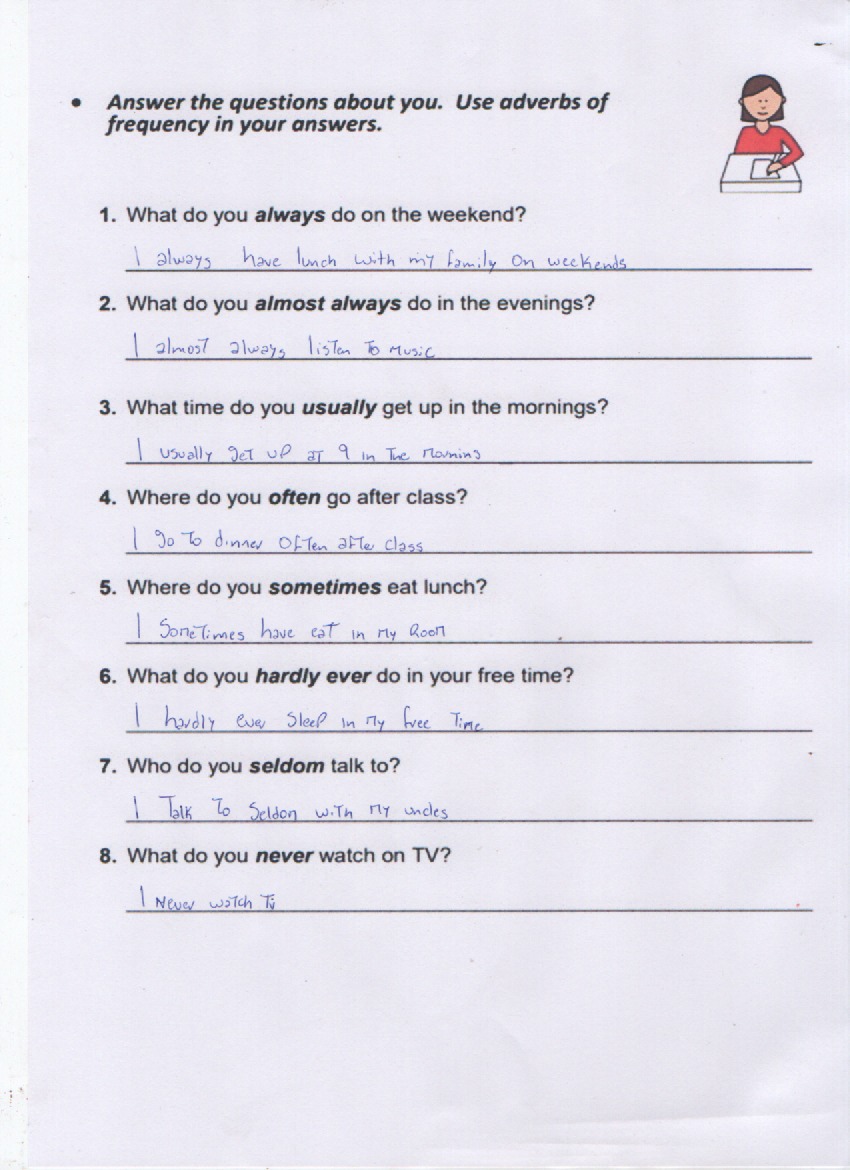 • Answer the questions about you. Use adverbs of
frequency in your answers.
1. What do you always do on the weekend?
I always have lunch with my family on weekends
2. What do you almost always do in the evenings?
I almost always listen to music
3. What time do you usually get up in the mornings?
I usually get up at 9 in the morning
4. Where do you often go after class?
I go to dinner often after class
5. Where do you sometimes eat lunch?
I sometimes have eat in my room
6. What do you hardly ever do in your free time?
I hardly ever sleep in my free time
7. Who do you seldom talk to?
I talk to seldon with my uncles
8. What do you never watch on TV?
I never watch tv